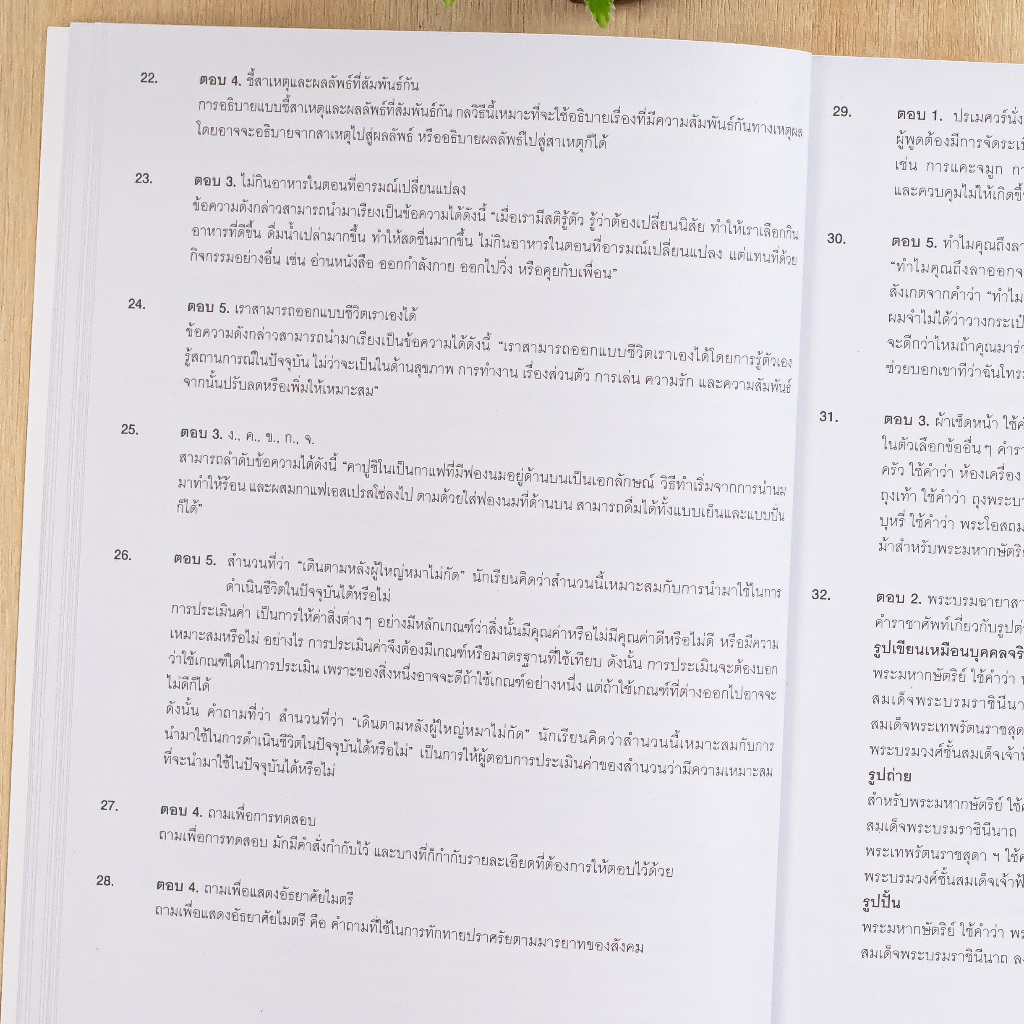 22. ตอบ 4. ชี้สาเหตุและผลลัพธ์ที่สัมพันธ์กัน
การอธิบายแบบชี้สาเหตุและผลลัพธ์ที่สัมพันธ์กัน กลวิธีนี้เหมาะที่จะใช้อธิบายเรื่องที่มีความสัมพันธ์กันทางเหตุผล
โดยอาจจะอธิบายจากสาเหตุไปสู่ผลลัพธ์ หรืออธิบายผลลัพธ์ไปสู่สาเหตุก็ได้
23. ตอบ 3. ไม่กินอาหารในตอนที่อารมณ์เปลี่ยนแปลง
ข้อความดังกล่าวสามารถนำมาเรียงเป็นข้อความได้ดังนี้ “เมื่อเรามีสติรู้ตัว รู้ว่าต้องเปลี่ยนนิสัย ทำให้เราเลือกกิน
อาหารที่ดีขึ้น ดื่มน้ำเปล่ามากขึ้น ทำให้สดชื่นมากขึ้น ไม่กินอาหารในตอนที่อารมณ์เปลี่ยนแปลง แต่แทนที่ด้วย
กิจกรรมอย่างอื่น เช่น อ่านหนังสือ ออกกำลังกาย ออกไปวิ่ง หรือคุยกับเพื่อน”
24. ตอบ 5. เราสามารถออกแบบชีวิตเราเองได้
ข้อความดังกล่าวสามารถนำมาเรียงเป็นข้อความได้ดังนี้ “เราสามารถออกแบบชีวิตเราเองได้โดยการรู้ตัวเอง
รู้สถานการณ์ในปัจจุบัน ไม่ว่าจะเป็นในด้านสุขภาพ การทำงาน เรื่องส่วนตัว การเล่น ความรัก และความสัมพันธ์
จากนั้นปรับลดหรือเพิ่มให้เหมาะสม”
25. ตอบ 3. ง., ค., ข., ก., จ.
สามารถลำดับข้อความได้ดังนี้ “คาปูชิโนเป็นกาแฟที่มีฟองนมอยู่ด้านบนเป็นเอกลักษณ์ วิธีทำเริ่มจากการนำนม
มาทำให้ร้อน และผสมกาแฟเอสเปรสโซ่ลงไป ตามด้วยใส่ฟองนมที่ด้านบน สามารถดื่มได้ทั้งแบบเย็นและแบบปั่น
ก็ได้”
26. ตอบ 5. สำนวนที่ว่า “เดินตามหลังผู้ใหญ่หมาไม่กัด” นักเรียนคิดว่าสำนวนนี้เหมาะสมกับการนำมาใช้ในการ
ดำเนินชีวิตในปัจจุบันได้หรือไม่
การประเมินค่า เป็นการให้ค่าสิ่งต่างๆ อย่างมีหลักเกณฑ์ว่าสิ่งนั้นมีคุณค่าหรือไม่มีคุณค่าดีหรือไม่ดี หรือมีความ
เหมาะสมหรือไม่ อย่างไร การประเมินค่าจึงต้องมีเกณฑ์หรือมาตรฐานที่ใช้เทียบ ดังนั้น การประเมินจะต้องบอก
ว่าใช้เกณฑ์ใดในการประเมิน เพราะของสิ่งหนึ่งอาจจะดีถ้าใช้เกณฑ์อย่างหนึ่ง แต่ถ้าใช้เกณฑ์ที่ต่างออกไปอาจจะ
ไม่ดีก็ได้
ดังนั้น คำถามที่ว่า สำนวนที่ว่า “เดินตามหลังผู้ใหญ่หมาไม่กัด” นักเรียนคิดว่าสำนวนนี้เหมาะสมกับการ
นำมาใช้ในการดำเนินชีวิตในปัจจุบันได้หรือไม่” เป็นการให้ผู้ตอบการประเมินค่าของสำนวนว่ามีความเหมาะสม
ที่จะนำมาใช้ในปัจจุบันได้หรือไม่
27. ตอบ 4. ถามเพื่อการทดสอบ
ถามเพื่อการทดสอบ มักมีคำสั่งกำกับไว้ และบางทีก็กำกับรายละเอียดที่ต้องการให้ตอบไว้ด้วย
28. ตอบ 4. ถามเพื่อแสดงอัธยาศัยไมตรี
ถามเพื่อแสดงอัธยาศัยไมตรี คือ คำถามที่ใช้ในการทักทายปราศรัยตามมารยาทของสังคม
29. ตอบ 1. ปรเมศวร์นั่ง
ผู้พูดต้องมีการจัดระเบี
เช่น การแคะจมูก กา
และควบคุมไม่ให้เกิดขึ้
30. ตอบ 5. ทำไมคุณถึงลา
“ทำไมคุณถึงลาออกจ
สังเกตจากคำว่า “ทำไม
ผมจำไม่ได้ว่าวางกระเป๋
จะดีกว่าไหมถ้าคุณมาร่ว
ช่วยบอกเขาทีว่าฉันโทร
31. ตอบ 3. ผ้าเช็ดหน้า ใช้ค
ในตัวเลือกข้ออื่นๆ คำรา
ครัว ใช้คำว่า ห้องเครื่อง
ถุงเท้า ใช้คำว่า ถุงพระบา
บุหรี่ ใช้คำว่า พระโอสถม
ม้าสำหรับพระมหากษัตริย์
32. ตอบ 2. พระบรมฉายาสา
คำราชาศัพท์เกี่ยวกับรูปต่
รูปเขียนเหมือนบุคคลจริ
พระมหากษัตริย์ ใช้คำว่า
สมเด็จพระบรมราชินีนา
สมเด็จพระเทพรัตนราชสุด
พระบรมวงศ์ชั้นสมเด็จเจ้าฟ้
รูปถ่าย
สำหรับพระมหากษัตริย์ ใช้ค
สมเด็จพระบรมราชินีนาถ
พระเทพรัตนราชสุดา ฯ ใช้ค
พระบรมวงศ์ชั้นสมเด็จเจ้าฟ้
รูปปั้น
พระมหากษัตริย์ ใช้คำว่า พร
สมเด็จพระบรมราชินีนาถ ลง